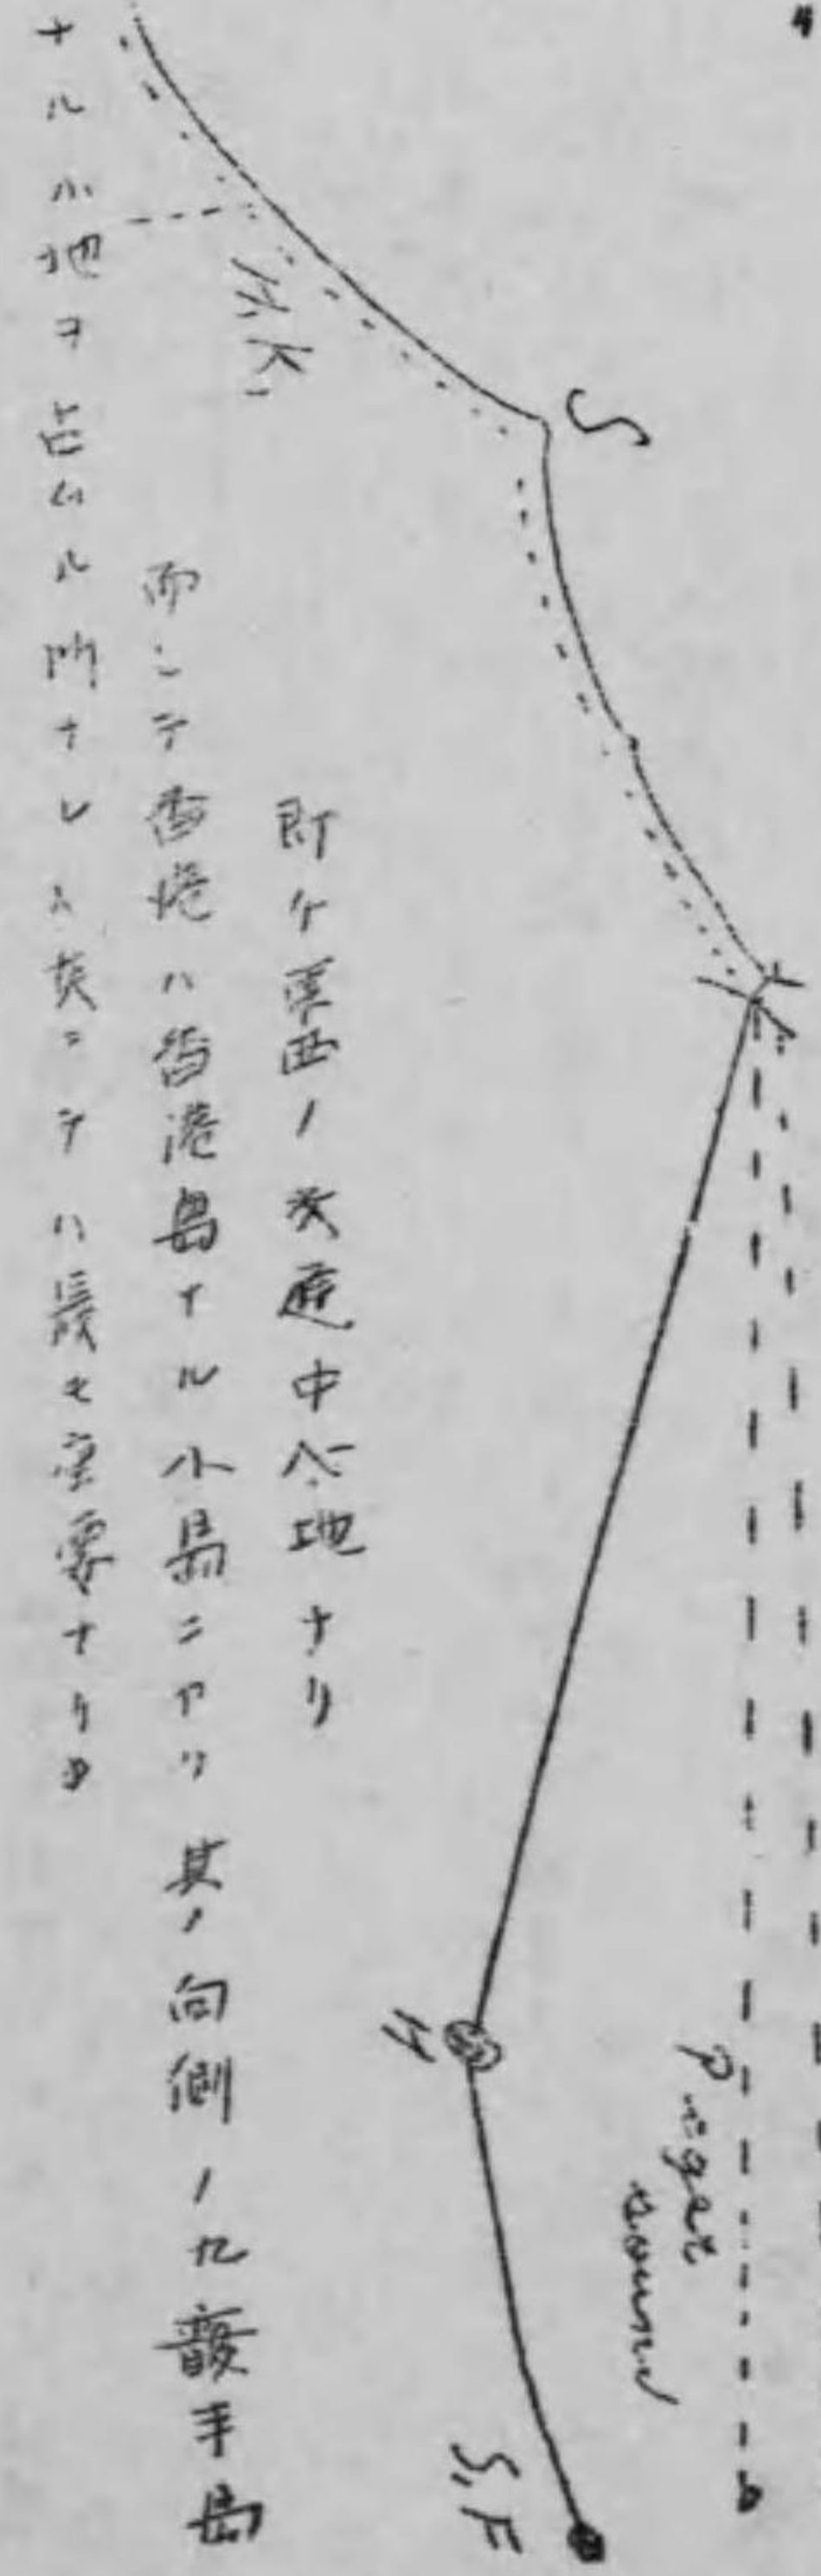 S
H.K.
H
S.F
Puget sound
即チ東西ノ交通中心地ナリ
而シテ香港ハ香港島ナル小島ニアリ其ノ向側ノ九龍半島
ナル小地ヲ占ムル所ナレハ英ニテハ最モ重要ナリ